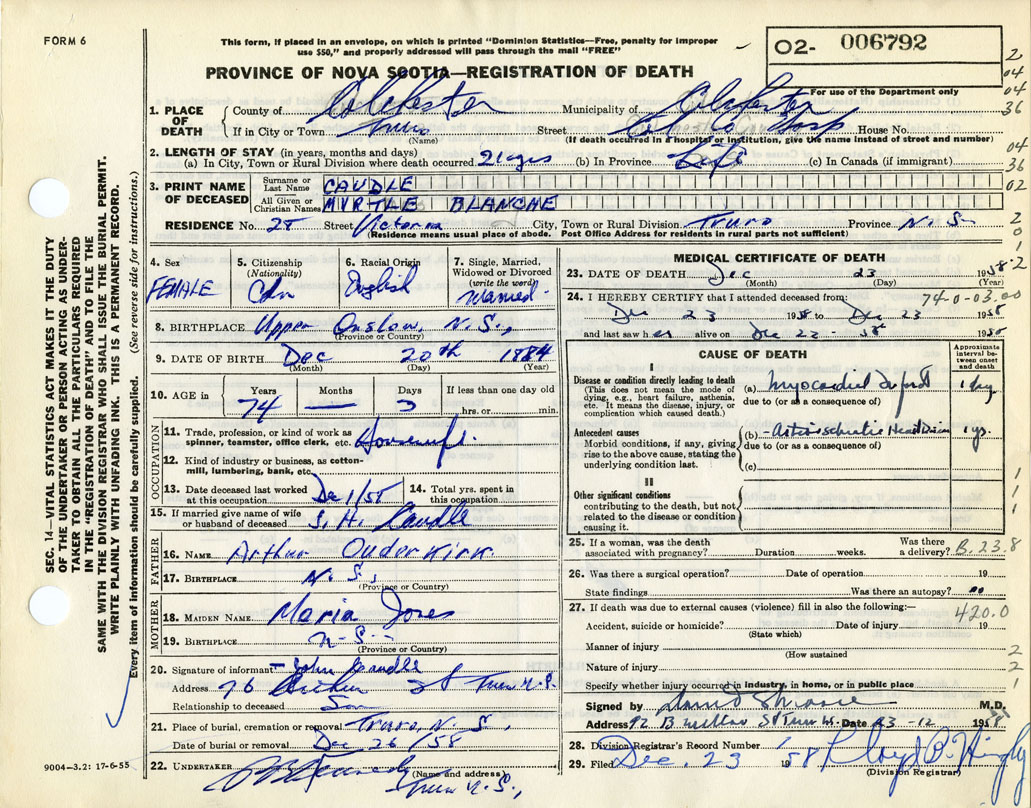 FORM 6
This form, if placed in an envelope, on which is printed "Dominion Statistics—Free, penalty for improper
use $50," and properly addressed will pass through the mail "FREE"
02- 006792
For use of the Department only
PROVINCE OF NOVA SCOTIA—REGISTRATION OF DEATH
2
04
04
36
04
36
02
2
0
1
2
SEC. 14—VITAL STATISTICS ACT MAKES IT THE DUTY
OF THE UNDERTAKER OR PERSON ACTING AS UNDER-
TAKER TO OBTAIN ALL THE PARTICULARS REQUIRED
IN THE "REGISTRATION OF DEATH" AND TO FILE THE
SAME WITH THE DIVISION REGISTRAR WHO SHALL ISSUE THE BURIAL PERMIT.
WRITE PLAINLY WITH UNFADING INK. THIS IS A PERMANENT RECORD.
Every item of information should be carefully supplied. (See reverse side for instructions.)
1. PLACE OF DEATH County of Colchester Municipality of Colchester
If in City or Town Truro Street Col. Co. Hosp House No.
(Name) (If death occurred in a hospital or institution, give the name instead of street and number)
2. LENGTH OF STAY (in years, months and days)
(a) In City, Town or Rural Division where death occurred (b) In Province Life (c) In Canada (if immigrant)
3. PRINT NAME OF DECEASED Surname or Last Name CAUDLE
All Given or Christian Names MYRTLE BLANCHE
RESIDENCE No. 28 Street Victoria City, Town or Rural Division Truro Province N.S.
(Residence means usual place of abode. Post Office Address for residents in rural parts not sufficient)
4. Sex FEMALE
5. Citizenship (Nationality) Cdn
6. Racial Origin English
7. Single, Married, Widowed or Divorced (write the word) Married
8. BIRTHPLACE Upper Onslow, N.S.,
(Province or Country)
9. DATE OF BIRTH Dec 20th 1884
(Month) (Day) (Year)
10. AGE in Years 74 Months — Days 3 If less than one day old hrs. or min.
OCCUPATION
11. Trade, profession, or kind of work as spinner, teamster, office clerk, etc. Housewife.
12. Kind of industry or business, as cotton-mill, lumbering, bank, etc.
13. Date deceased last worked at this occupation Dec 1/58
14. Total yrs. spent in this occupation
15. If married give name of wife or husband of deceased S. H. Caudle
FATHER
16. NAME Arthur Ouderkirk
17. BIRTHPLACE N.S.,
(Province or Country)
MOTHER
18. MAIDEN NAME Maria Jones
19. BIRTHPLACE N.S.
(Province or Country)
20. Signature of informant John Caudle
Address 76 Arthur St Truro N.S.
Relationship to deceased Son
21. Place of burial, cremation or removal Truro, N.S.,
Date of burial or removal Dec 26/58
22. UNDERTAKER Kennedy
(Name and address) Truro N.S.,
9004—3.2: 17-6-55
MEDICAL CERTIFICATE OF DEATH
23. DATE OF DEATH Dec 23 1958
(Month) (Day) (Year)
74-0-03.00
24. I HEREBY CERTIFY that I attended deceased from:
Dec 23 1958 to Dec 23 1958
and last saw her alive on Dec 23 - 58 1958
CAUSE OF DEATH
Approximate interval between onset and death
I
Disease or condition directly leading to death
(This does not mean the mode of dying, e.g., heart failure, asthenia, etc. It means the disease, injury, or complication which caused death.)
(a) Myocardial Infarct 1 day
due to (or as a consequence of)
Antecedent causes
Morbid conditions, if any, giving rise to the above cause, stating the underlying condition last.
(b) Arteriosclerotic Heart Disease yrs.
due to (or as a consequence of)
(c)
II
Other significant conditions
contributing to the death, but not related to the disease or condition causing it.
1
1
1
25. If a woman, was the death associated with pregnancy? Duration weeks. Was there a delivery? B.23.8
26. Was there a surgical operation? Date of operation 19
State findings Was there an autopsy? no
27. If death was due to external causes (violence) fill in also the following:— 420.0
Accident, suicide or homicide? Date of injury 19
(State which)
Manner of injury 2
(How sustained
Nature of injury 2
Specify whether injury occurred in industry, in home, or in public place 1
Signed by M.D.
Address 92 St Truro Date 23-12 1958
28. Division Registrar's Record Number
29. Filed Dec. 23 1958 Lloyd B.
(Division Registrar)